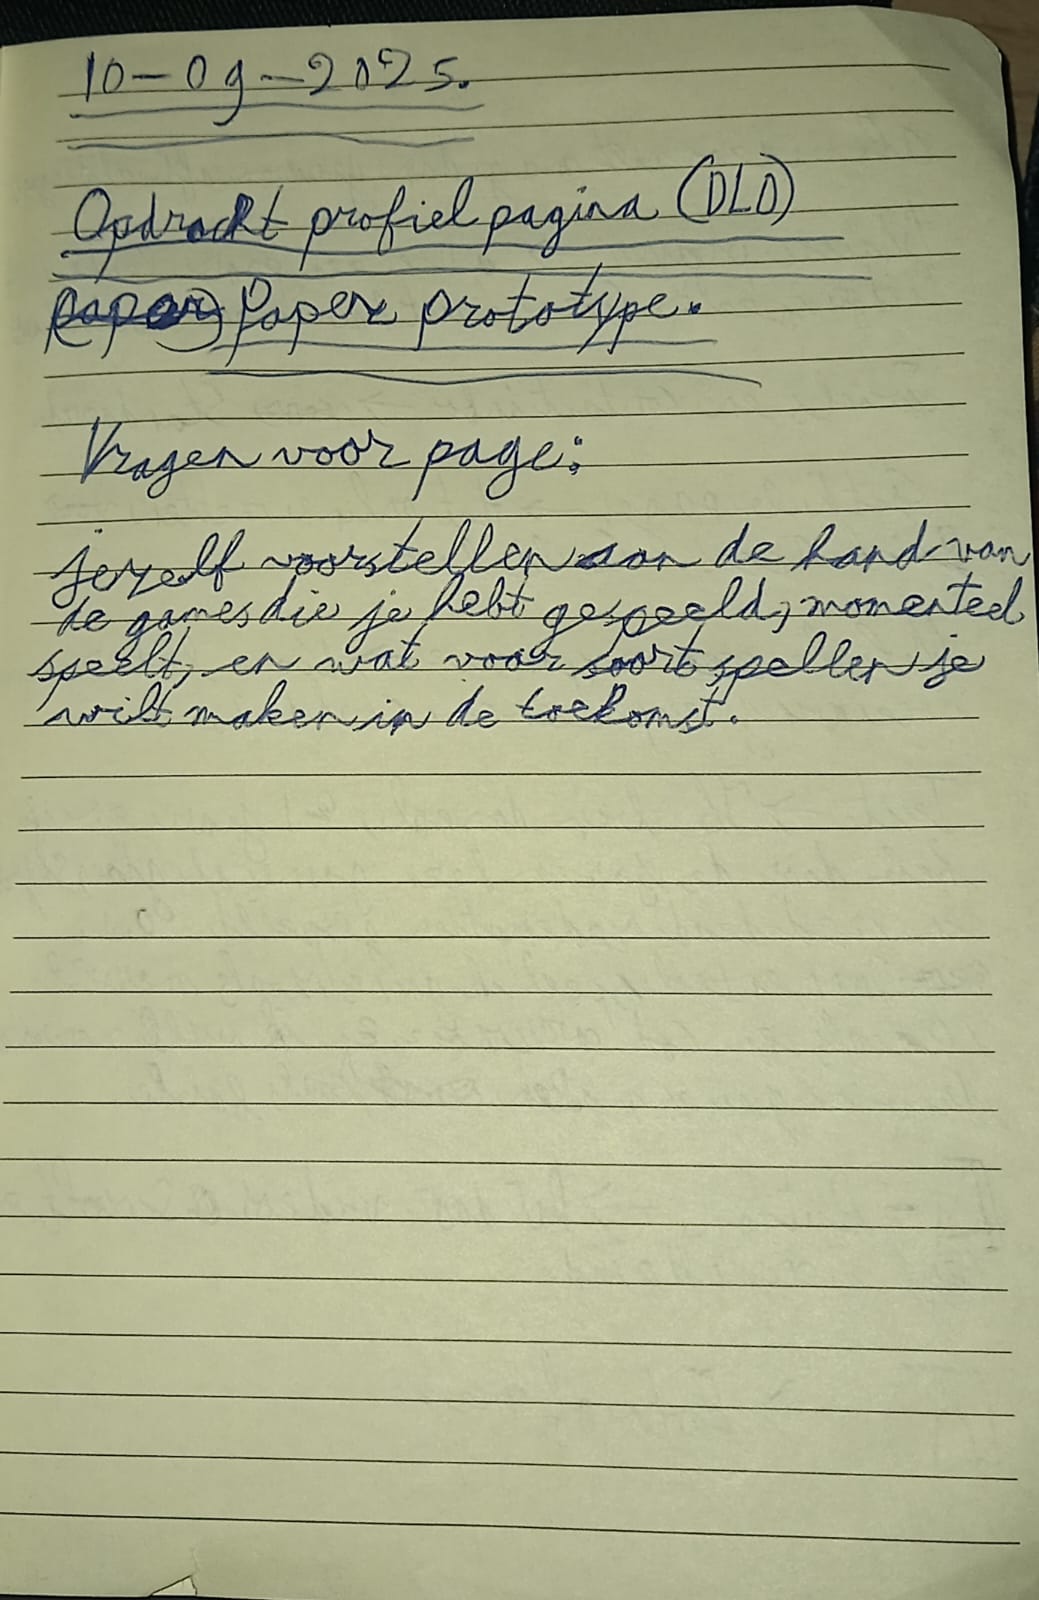 10-09-2025.
Opdracht profiel pagina (DLO)
Paper prototype.
Vragen voor page:
jezelf voorstellen aan de hand van
de games die je hebt gespeeld, momenteel
speelt, en wat voor soort spellen je
wilt maken in de toekomst.